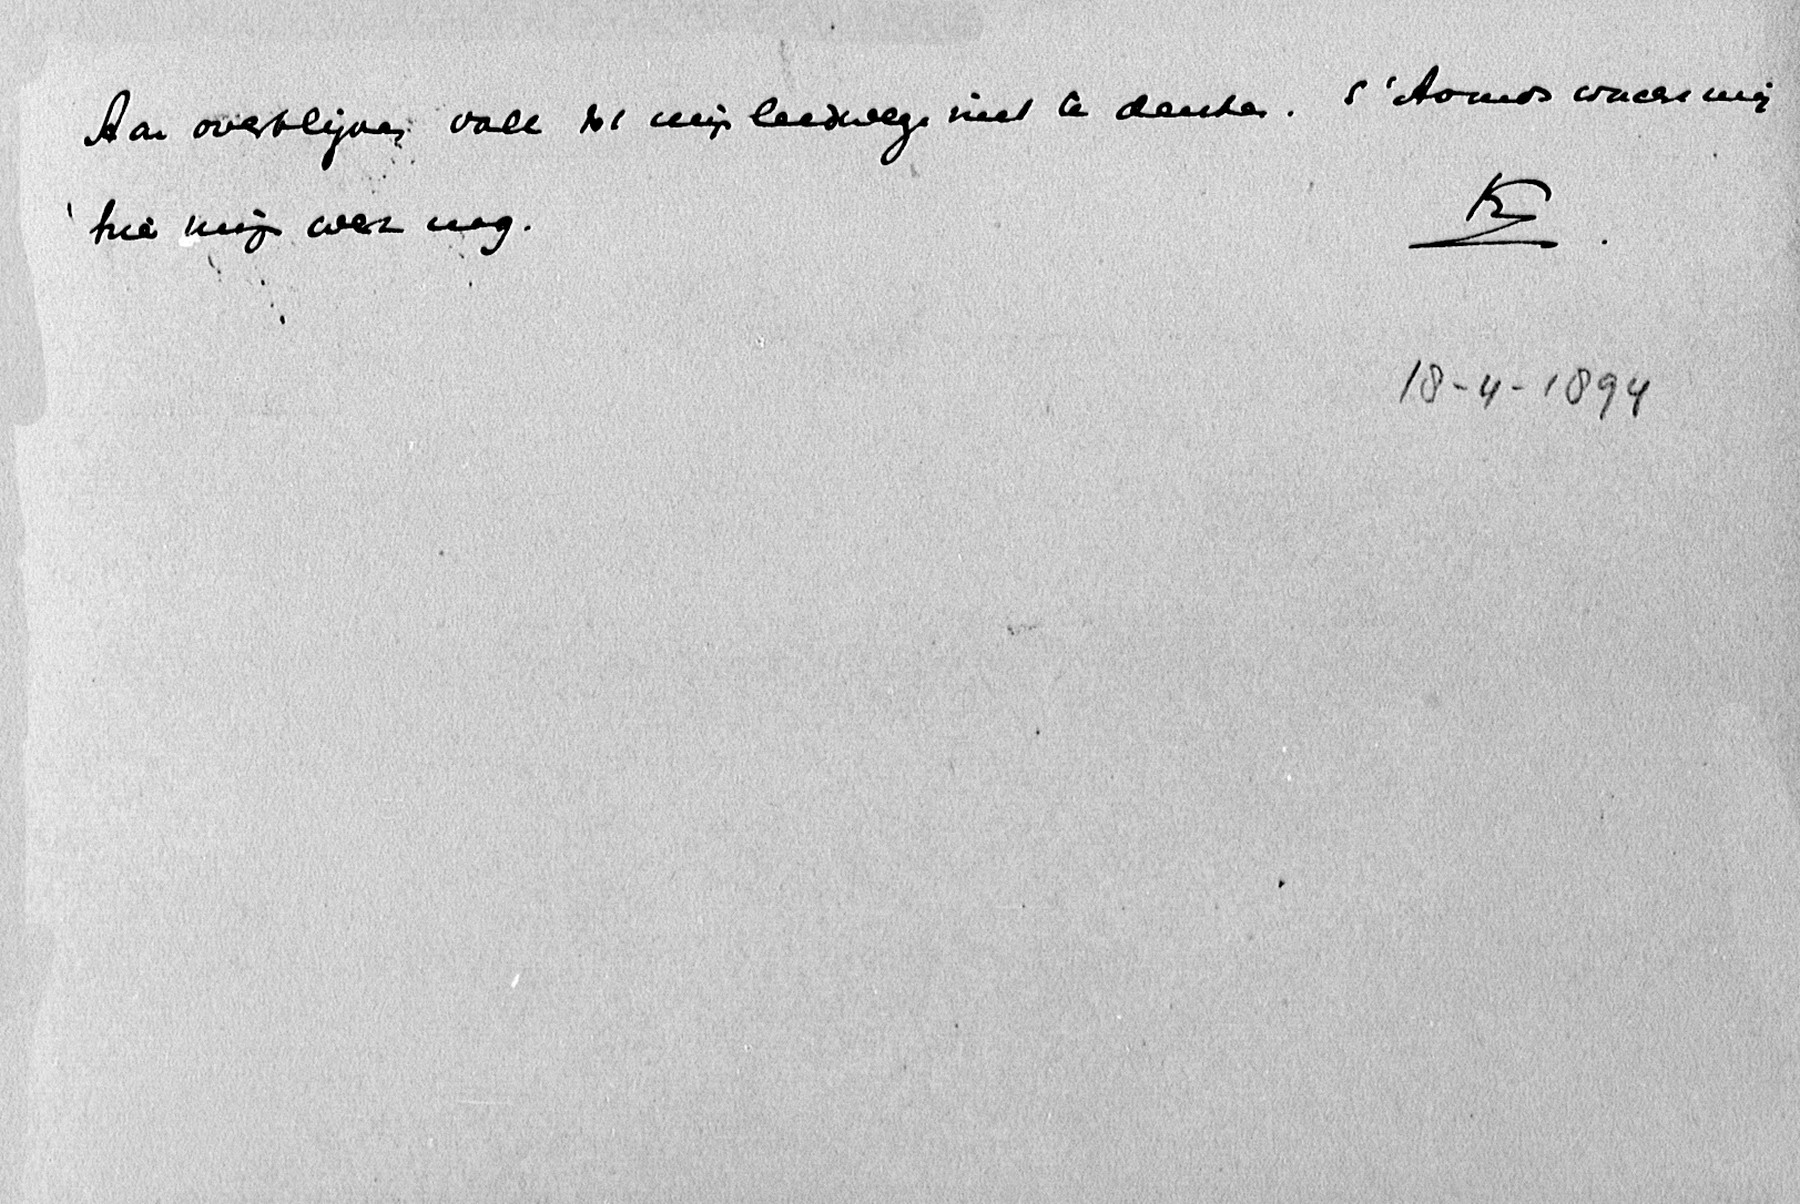 Aan overblijven valt tot mijn leedwezen niet te denken. s'Avonds wacht mij
hier mijn werk nog.
K
18-4-1894